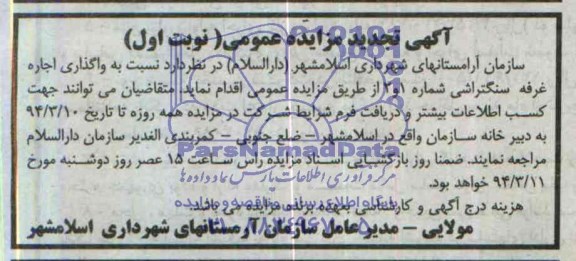 آگهی تجدید مزایده عمومی( نوبت اول)
سازمان آرامستانهای شهرداری اسلامشهر (دارالسلام) در نظر دارد نسبت به واگذاری اجاره
غرفه سنگتراشی شماره ۱و۲ از طریق مزایده عمومی اقدام نماید. متقاضیان می توانند جهت
کسب اطلاعات بیشتر و دریافت فرم شرایط شرکت در مزایده همه روزه تا تاریخ ۹۴/۳/۱۰
به دبیر خانه سازمان واقع در اسلامشهر – ضلع جنوبی – کمربندی الغدیر سازمان دارالسلام
ParsNamadData
مراجعه نمایند. ضمنا روز بازگشایی اسناد مزایده رأس ساعت ۱۵ عصر روز دوشنبه مورخ
مرکز فرآوری اطلاعات پارس نماد داده ها
۹۴/۳/۱۱ خواهد بود.
پایگاه اطلاع رسانی مناقصه و مزایده
هزینه درج آگهی و کارشناسی بعهده برنده مزایده می باشد.
مولایی – مدیر عامل سازمان آرامستانهای شهرداری اسلامشهر